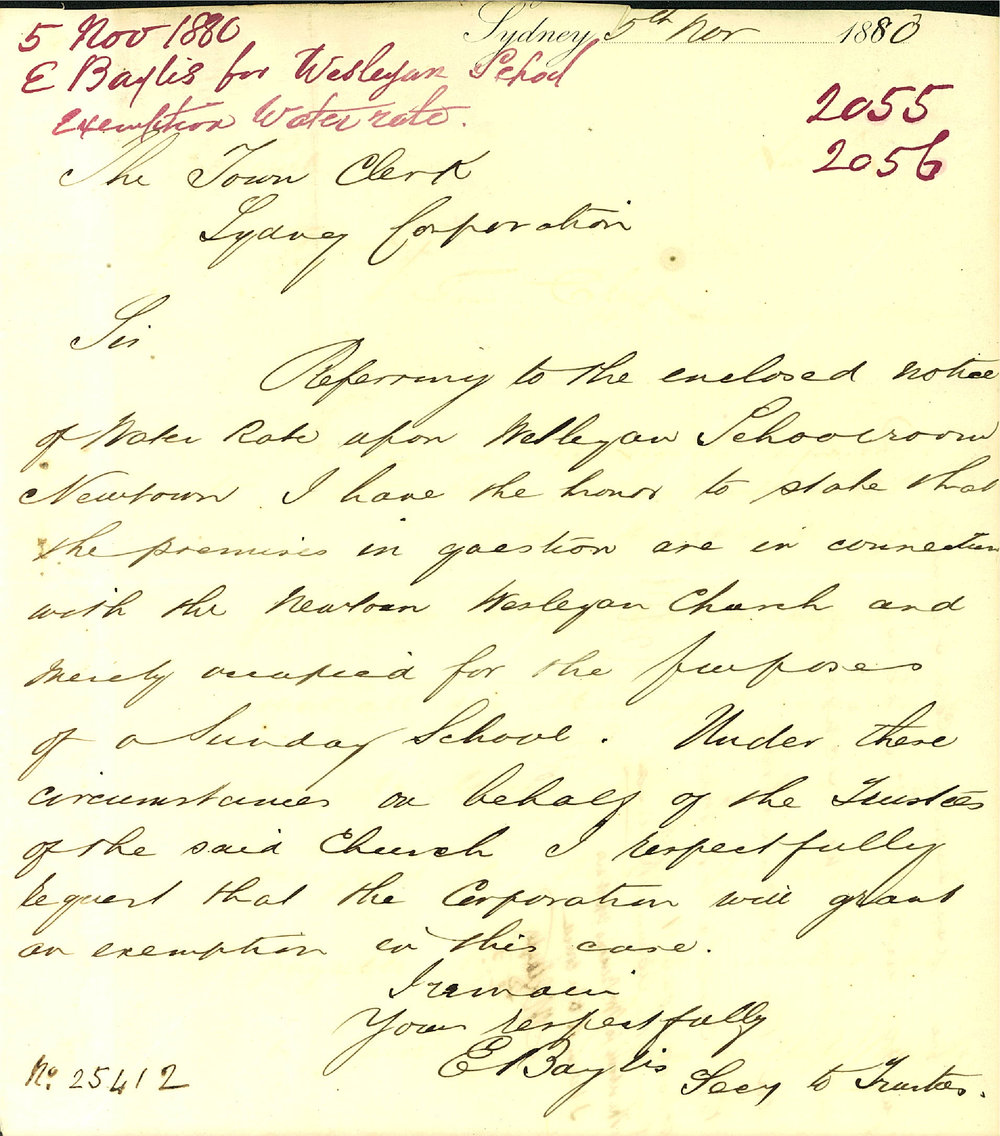 5 Nov 1880
E Baylis for Wesleyan School
Exemption Water rate.
Sydney 5th Nov 1880
2055
2056
The Town Clerk
Sydney Corporation
Sir
Referring to the enclosed notice
of Water Rate upon Wesleyan Schoolroom
Newtown I have the honor to state that
the premises in question are in connection
with the Newtown Wesleyan Church and
merely occupied for the purposes
of a Sunday School. Under these
circumstances on behalf of the Trustees
of the said Church I respectfully
request that the Corporation will grant
an exemption in this case.
I remain
Yours respectfully
E Baylis Secy to Trustees.
No. 25412